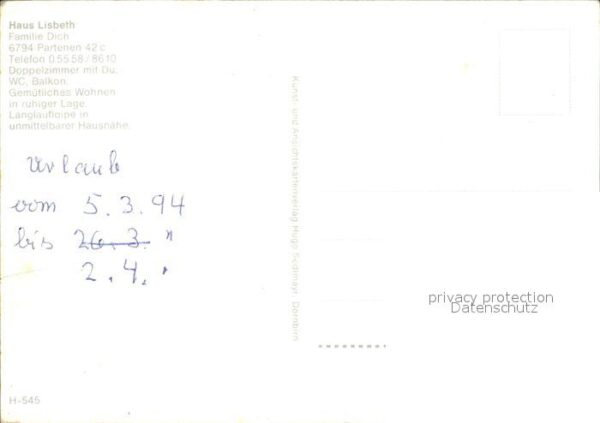 Haus Lisbeth
Familie Dich
6794 Partenen 42 c
Telefon 0 55 58 / 86 10
Doppelzimmer mit Du,
WC, Balkon.
Gemütliches Wohnen
in ruhiger Lage.
Langlaufloipe in
unmittelbarer Hausnähe.
Urlaub
vom 5.3.94
bis 26.3. "
2.4. "
H-545
Kunst- und Ansichtskartenverlag Hugo Sedlmayr, Dornbirn
privacy protection
Datenschutz